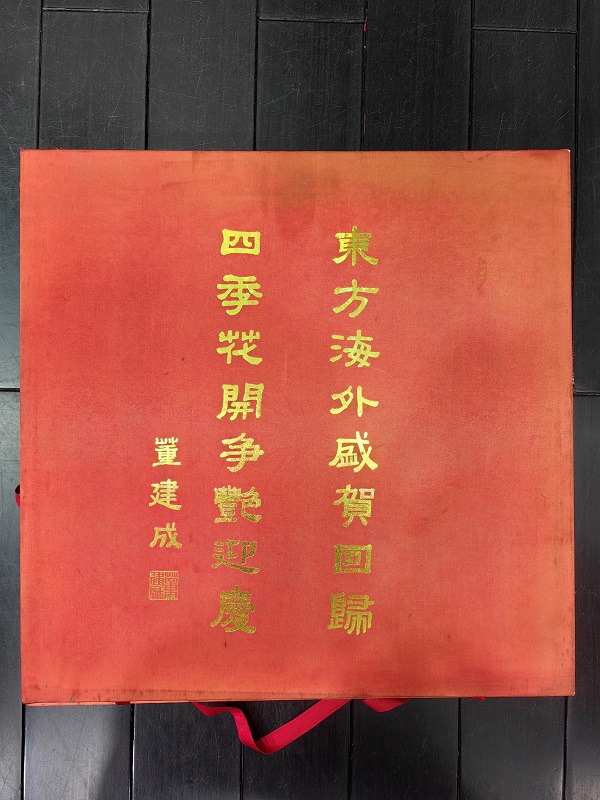 東方海外盛賀回歸
四季花開争艷迎慶
董建成